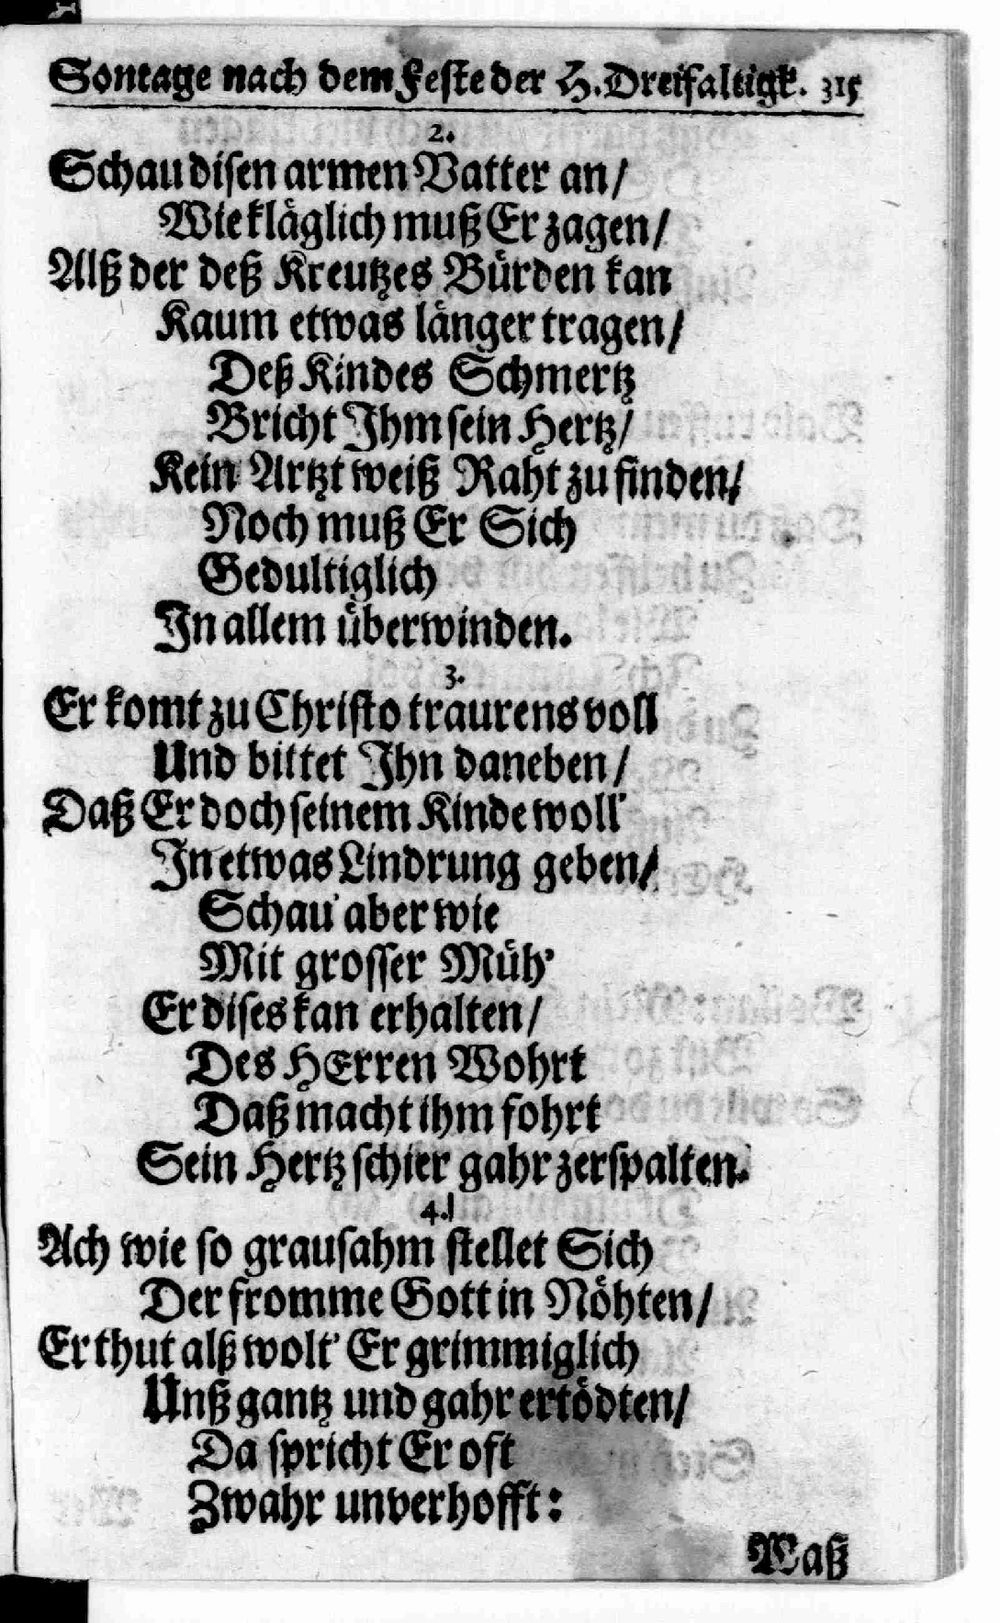 Sontage nach dem Feste der H. Dreifaltigk. 315
2.
Schau disen armen Vatter an/
Wie kläglich muß Er zagen/
Alß der deß Kreutzes Bürden kan
Kaum etwas länger tragen/
Deß Kindes Schmertz
Bricht Ihm sein Hertz/
Kein Artzt weiß Raht zu finden/
Noch muß Er Sich
Gedultiglich
In allem überwinden.
3.
Er komt zu Christo traurens voll
Und bittet Ihn daneben/
Daß Er doch seinem Kinde woll'
In etwas Lindrung geben/
Schau' aber wie
Mit grosser Müh'
Er dises kan erhalten/
Des HErren Wohrt
Daß macht ihm fohrt
Sein Hertz schier gahr zerspalten.
4.
Ach wie so grausahm stellet Sich
Der fromme Gott in Nöhten/
Er thut alß wolt' Er grimmiglich
Unß gantz und gahr ertödten/
Da spricht Er oft
Zwahr unverhofft:
Waß